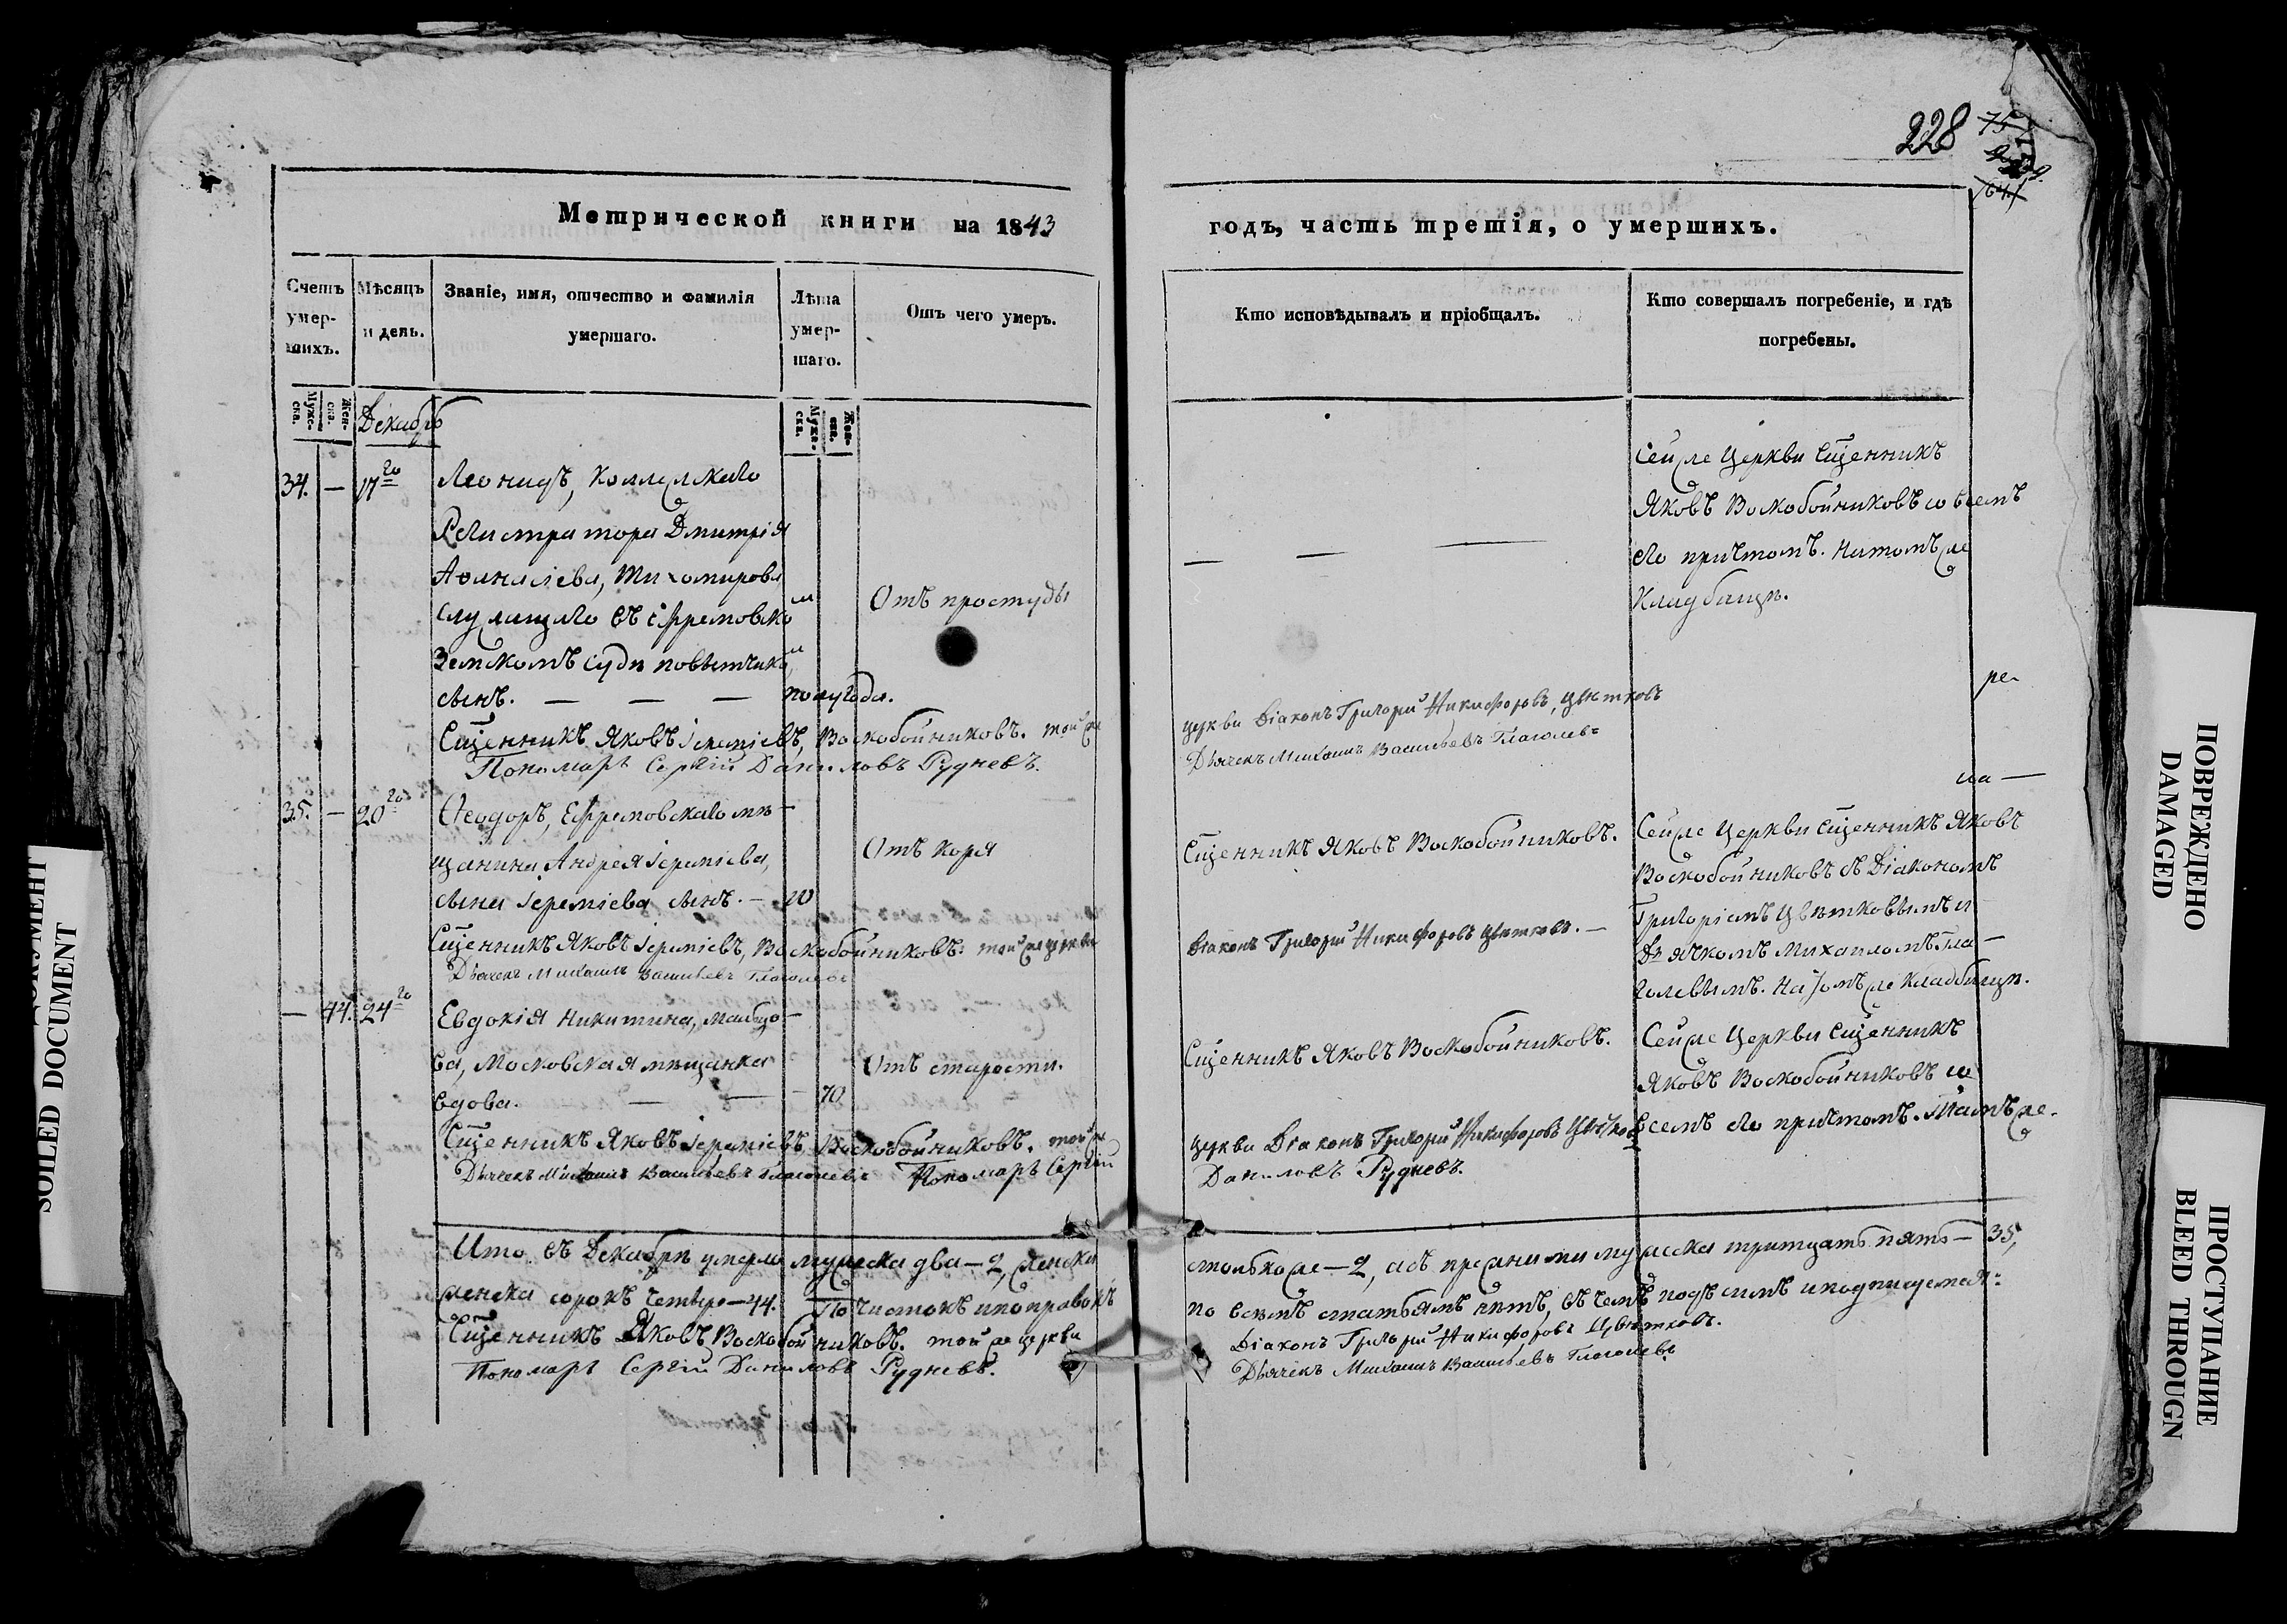 228
Метрической книги на 1843
годъ, часть третія, о умершихъ.
Счетъ умер-
шихъ.
Мѣсяцъ
и день.
Званіе, имя, отчество и фамилія
умершаго.
Лѣта
умер-
шаго.
Отъ чего умеръ.
Кто исповѣдывалъ и пріобщалъ.
Кто совершалъ погребеніе, и гдѣ
погребены.
Мужес-
ска.
Жен-
ска.
Декабрь
Мужес-
ска.
Жен-
ска.
34. — 17го
Леонидъ, Коллежскаго
Регистратора Дмитрія
Аѳанасіева, Тихомирова
служащаго въ Ефремовском
Земскомъ Суде повытчиком
сынъ. — — — полугода.
Отъ простуды
— — —
Сей же Церкви Сщенникъ
Яковъ Воскобойниковъ со всемъ
его причтомъ. На томъ же
Кладбище.
Сщенникъ Яковъ Іереміевъ, Воскобойниковъ. той же
церкви Діаконъ Григорій Никифоровъ, Цвѣтковъ
Пономарь Сергій Даниловъ Рудневъ.
Дьячекъ Михаилъ Васильевъ Глаголевъ
35. — 20го
Ѳеодоръ, Ефремовскаго мѣ-
щанина Андрея Іереміева,
сына Іереміева сынъ. — 10
Отъ коря
Сщенникъ Яковъ Воскобойниковъ.
Сей же Церкви Сщенникъ Яковъ
Воскобойниковъ съ Діакономъ
Григоріемъ Цвѣтковымъ и
Дьячкомъ Михаиломъ Гла-
голевымъ. На томъ же Кладбище.
Сщенникъ Яковъ Іереміевъ, Воскобойниковъ. той же церкви
Діаконъ Григорій Никифоровъ Цвѣтковъ. —
Дьячекъ Михаилъ Васильевъ Глаголевъ
— 44. 24го
Евдокія Никитина,
ва, Московская мѣщанка
вдова. — — — 70
Отъ старости.
Сщенникъ Яковъ Воскобойниковъ.
Сей же Церкви Сщенникъ
Яковъ Воскобойниковъ со
всемъ его причтомъ. Тамъ же.
Сщенникъ Яковъ Іереміевъ Воскобойниковъ. той же
церкви Діаконъ Григорій Никифоровъ Цвѣтков
Дьячекъ Михаилъ Васильевъ Глаголевъ Пономарь Сергій
Даниловъ Рудневъ.
Итого въ Декабрѣ умерло мужеска два — 2, женска
столько же — 2, а съ прежними мужеска тритцать пять — 35,
женска сорокъ четыре — 44. Почистокъ и поправокъ
по всѣмъ статьямъ нѣтъ, въ чемъ подъ симъ и подписуемся:
Сщенникъ Яковъ Воскобойниковъ. той же церкви
Діаконъ Григорій Никифоровъ Цвѣтковъ.
Пономарь Сергій Даниловъ Рудневъ.
Дьячекъ Михаилъ Васильевъ Глаголевъ
SOILED DOCUMENT
ПОВРЕЖДЕНО
DAMAGED
ПРОСТУПАНИЕ
BLEED THROUGN